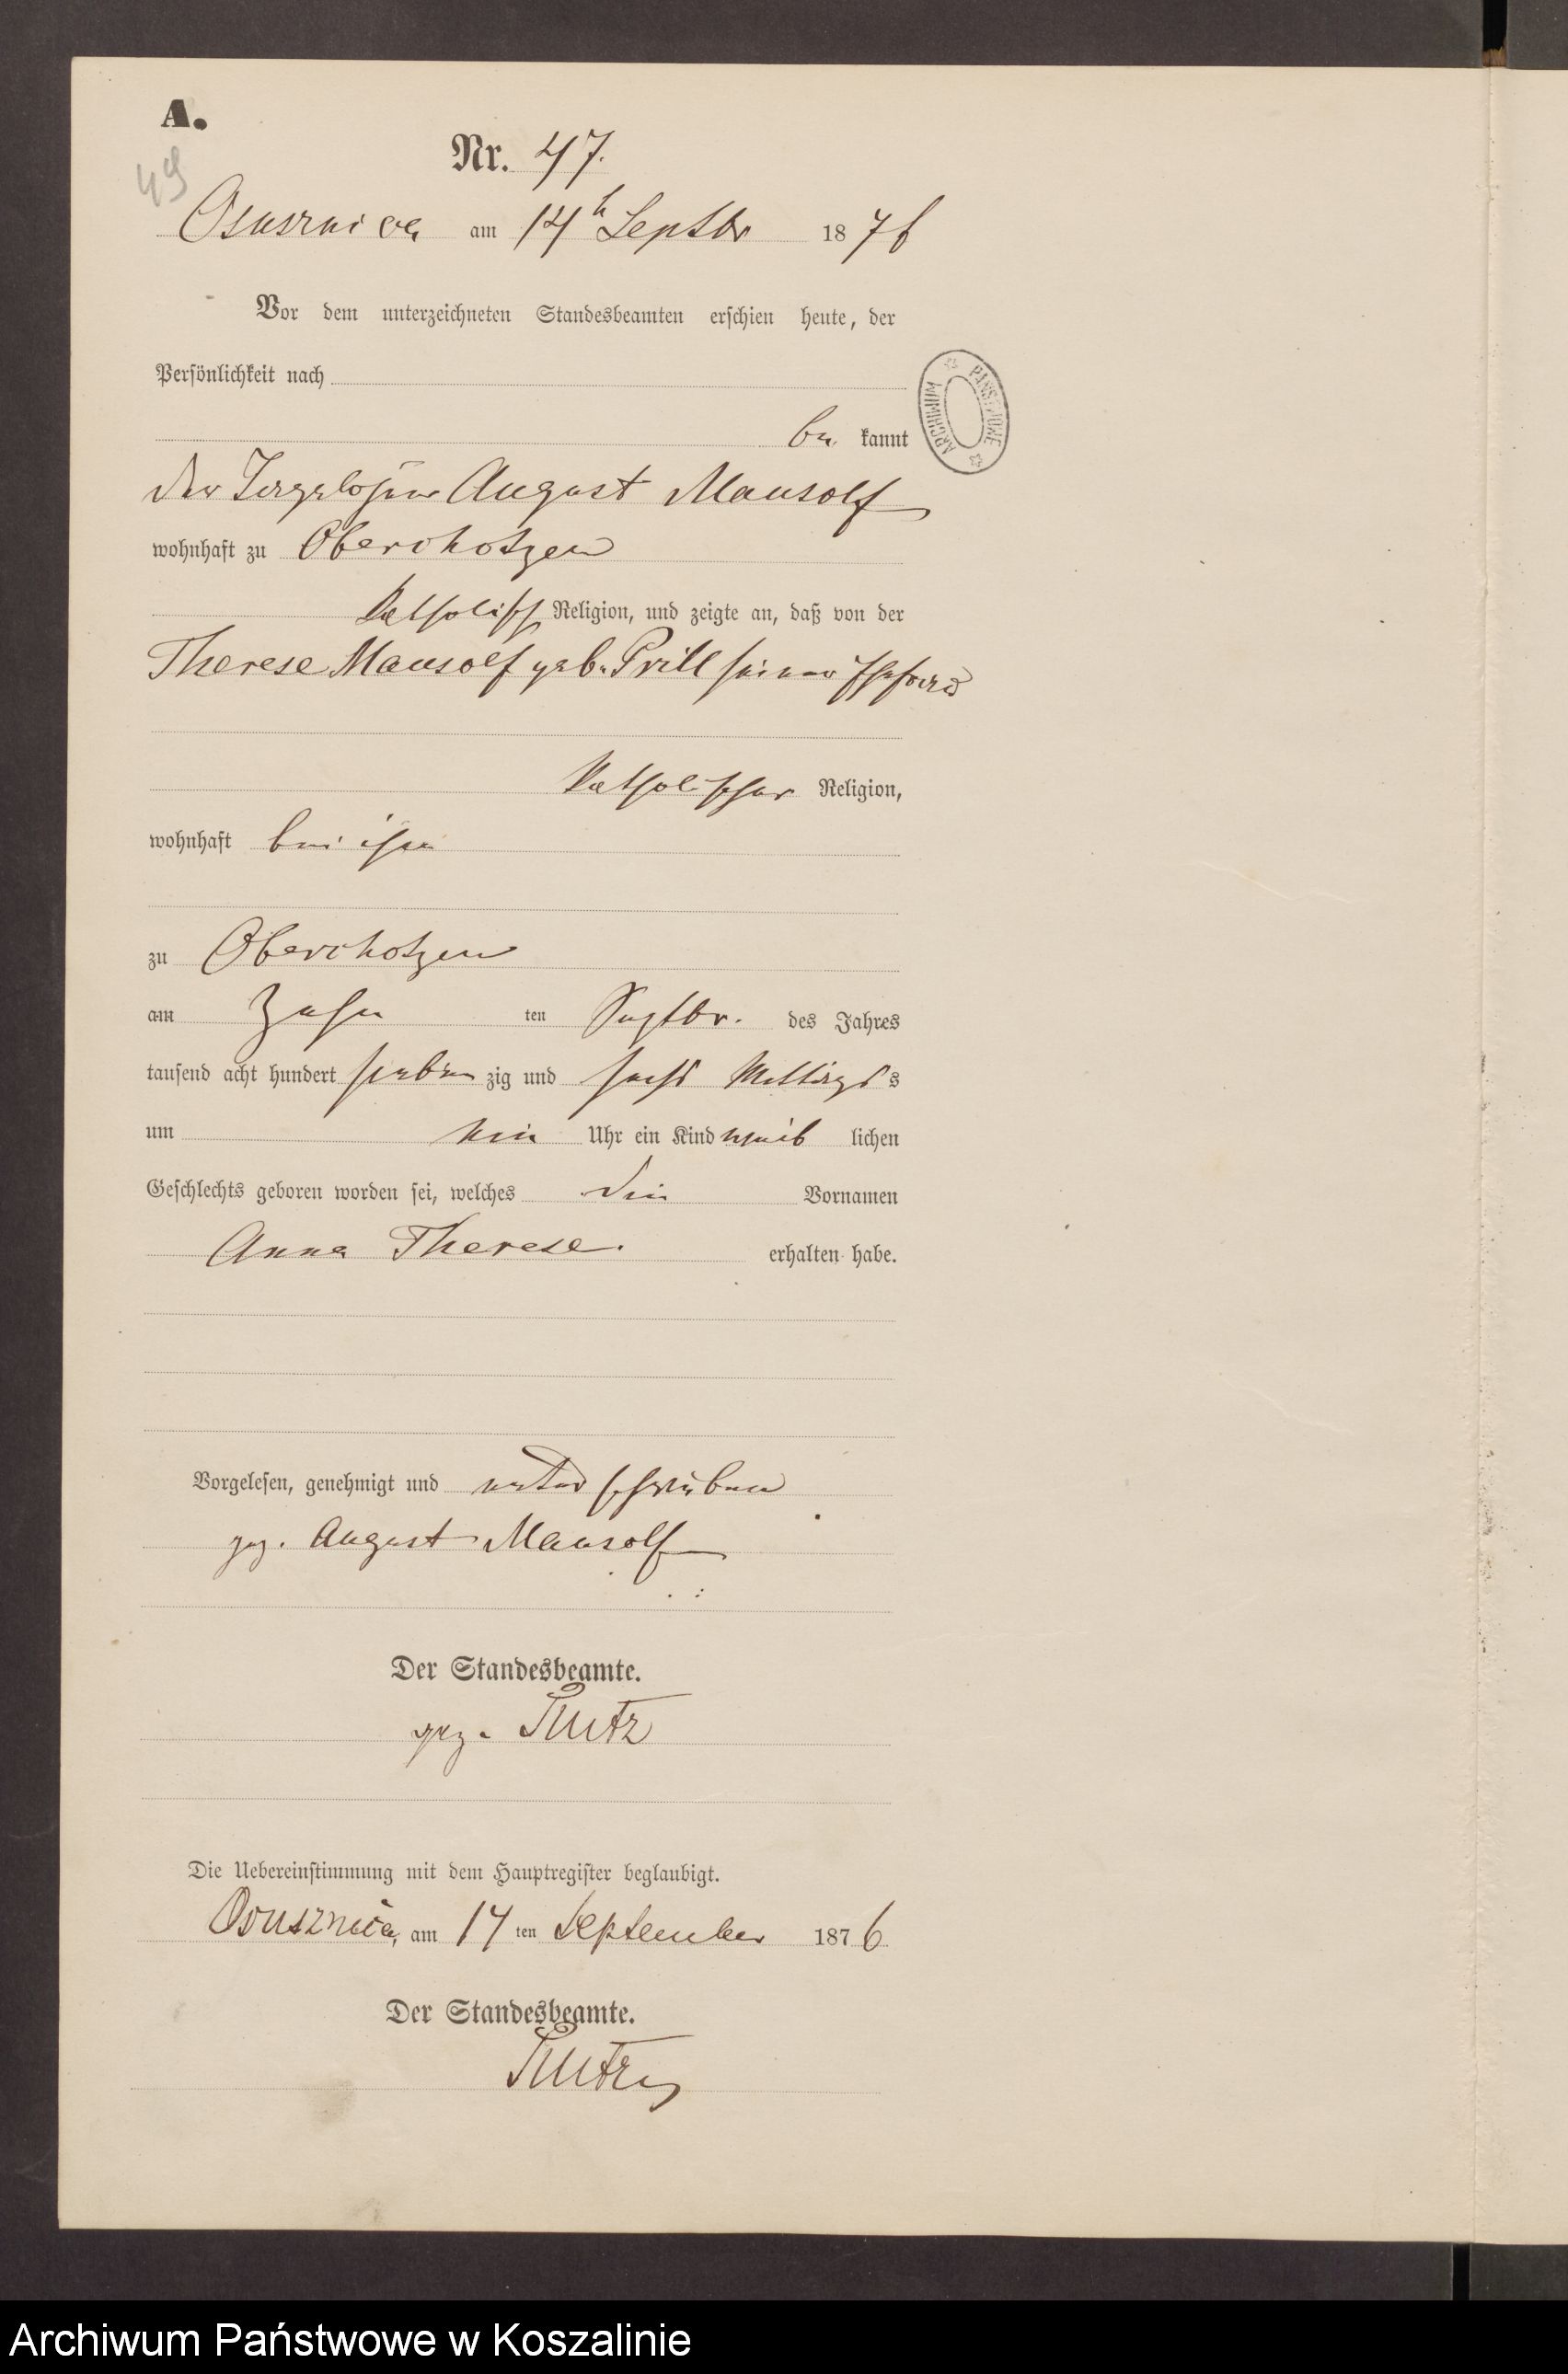 A.
49
Nr. 47.
Osusznica am 14ten Septbr 1876
Vor dem unterzeichneten Standesbeamten erschien heute, der
Persönlichkeit nach
be kannt
der Tagelöhner August Mausolf
wohnhaft zu Oberchotzen
katholisch Religion, und zeigte an, daß von der
Therese Mausolf geb. Prill seiner Ehefrau
katholischer Religion,
wohnhaft bei ihm
zu Oberchotzen
am Zehn ten Septbr. des Jahres
tausend acht hundert sieben zig und sechs Mittags
um ein Uhr ein Kind weib lichen
Geschlechts geboren worden sei, welches die Vornamen
Anna Therese. erhalten habe.
Vorgelesen, genehmigt und unterschrieben
gez. August Mausolf
Der Standesbeamte.
gez.
Die Uebereinstimmung mit dem Hauptregister beglaubigt.
Osusznica, am 14 ten September 1876
Der Standesbeamte.
ARCHIWUM PAŃSTWOWE
Archiwum Państwowe w Koszalinie